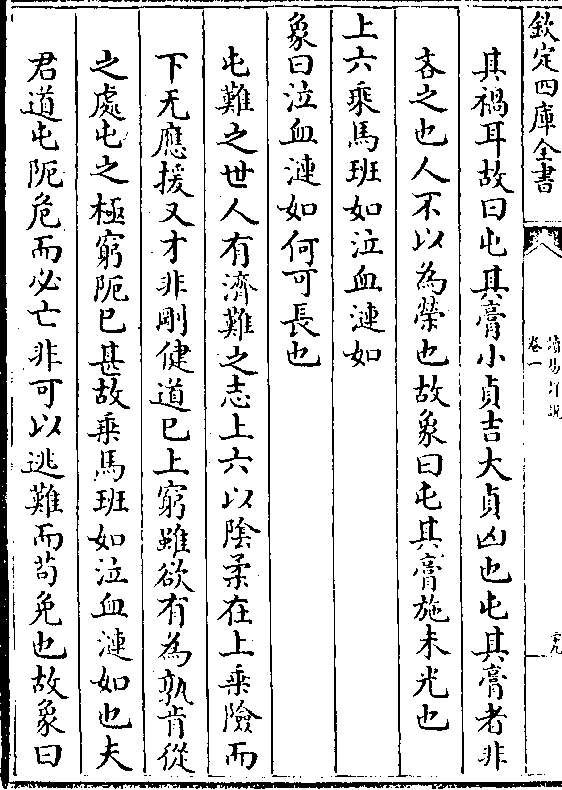 欽定四庫全書
讀易詳說
卷一
其禍耳故曰屯其膏小貞吉大貞凶也屯其膏者非
吝之也人不以為榮也故象曰屯其膏施未光也
上六乘馬班如泣血漣如
象曰泣血漣如何可長也
屯難之世人有濟難之志上六以陰柔在上乘險而
下无應援又才非剛健道已上窮雖欲有為孰肯從
之處屯之極窮阨已甚故乘馬班如泣血漣如也夫
君道屯阨危而必亡非可以逃難而苟免也故象曰